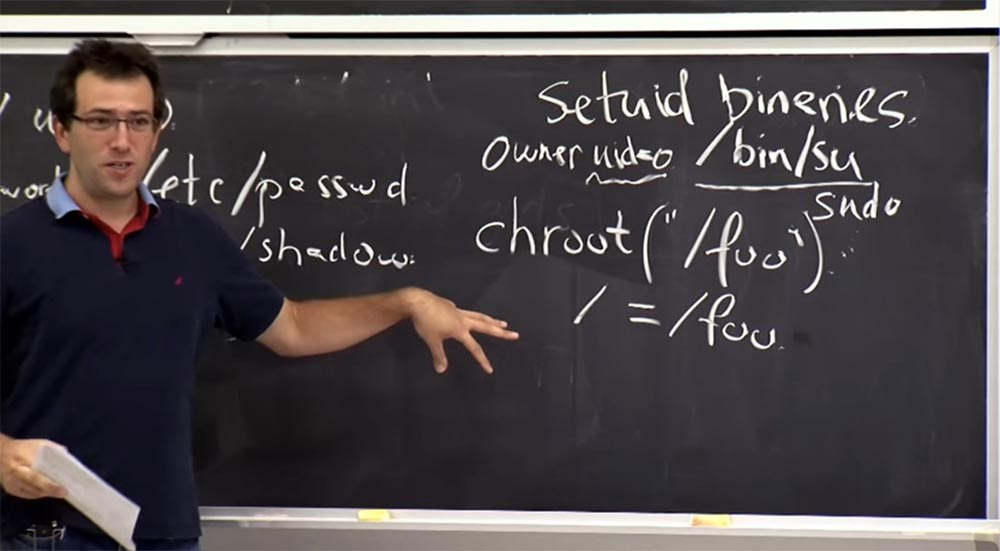 /etc/passwd
/shadow.
setuid bineries.
owner uid=0 /bin/su
sudo
chroot("/foo")
/ = /foo.